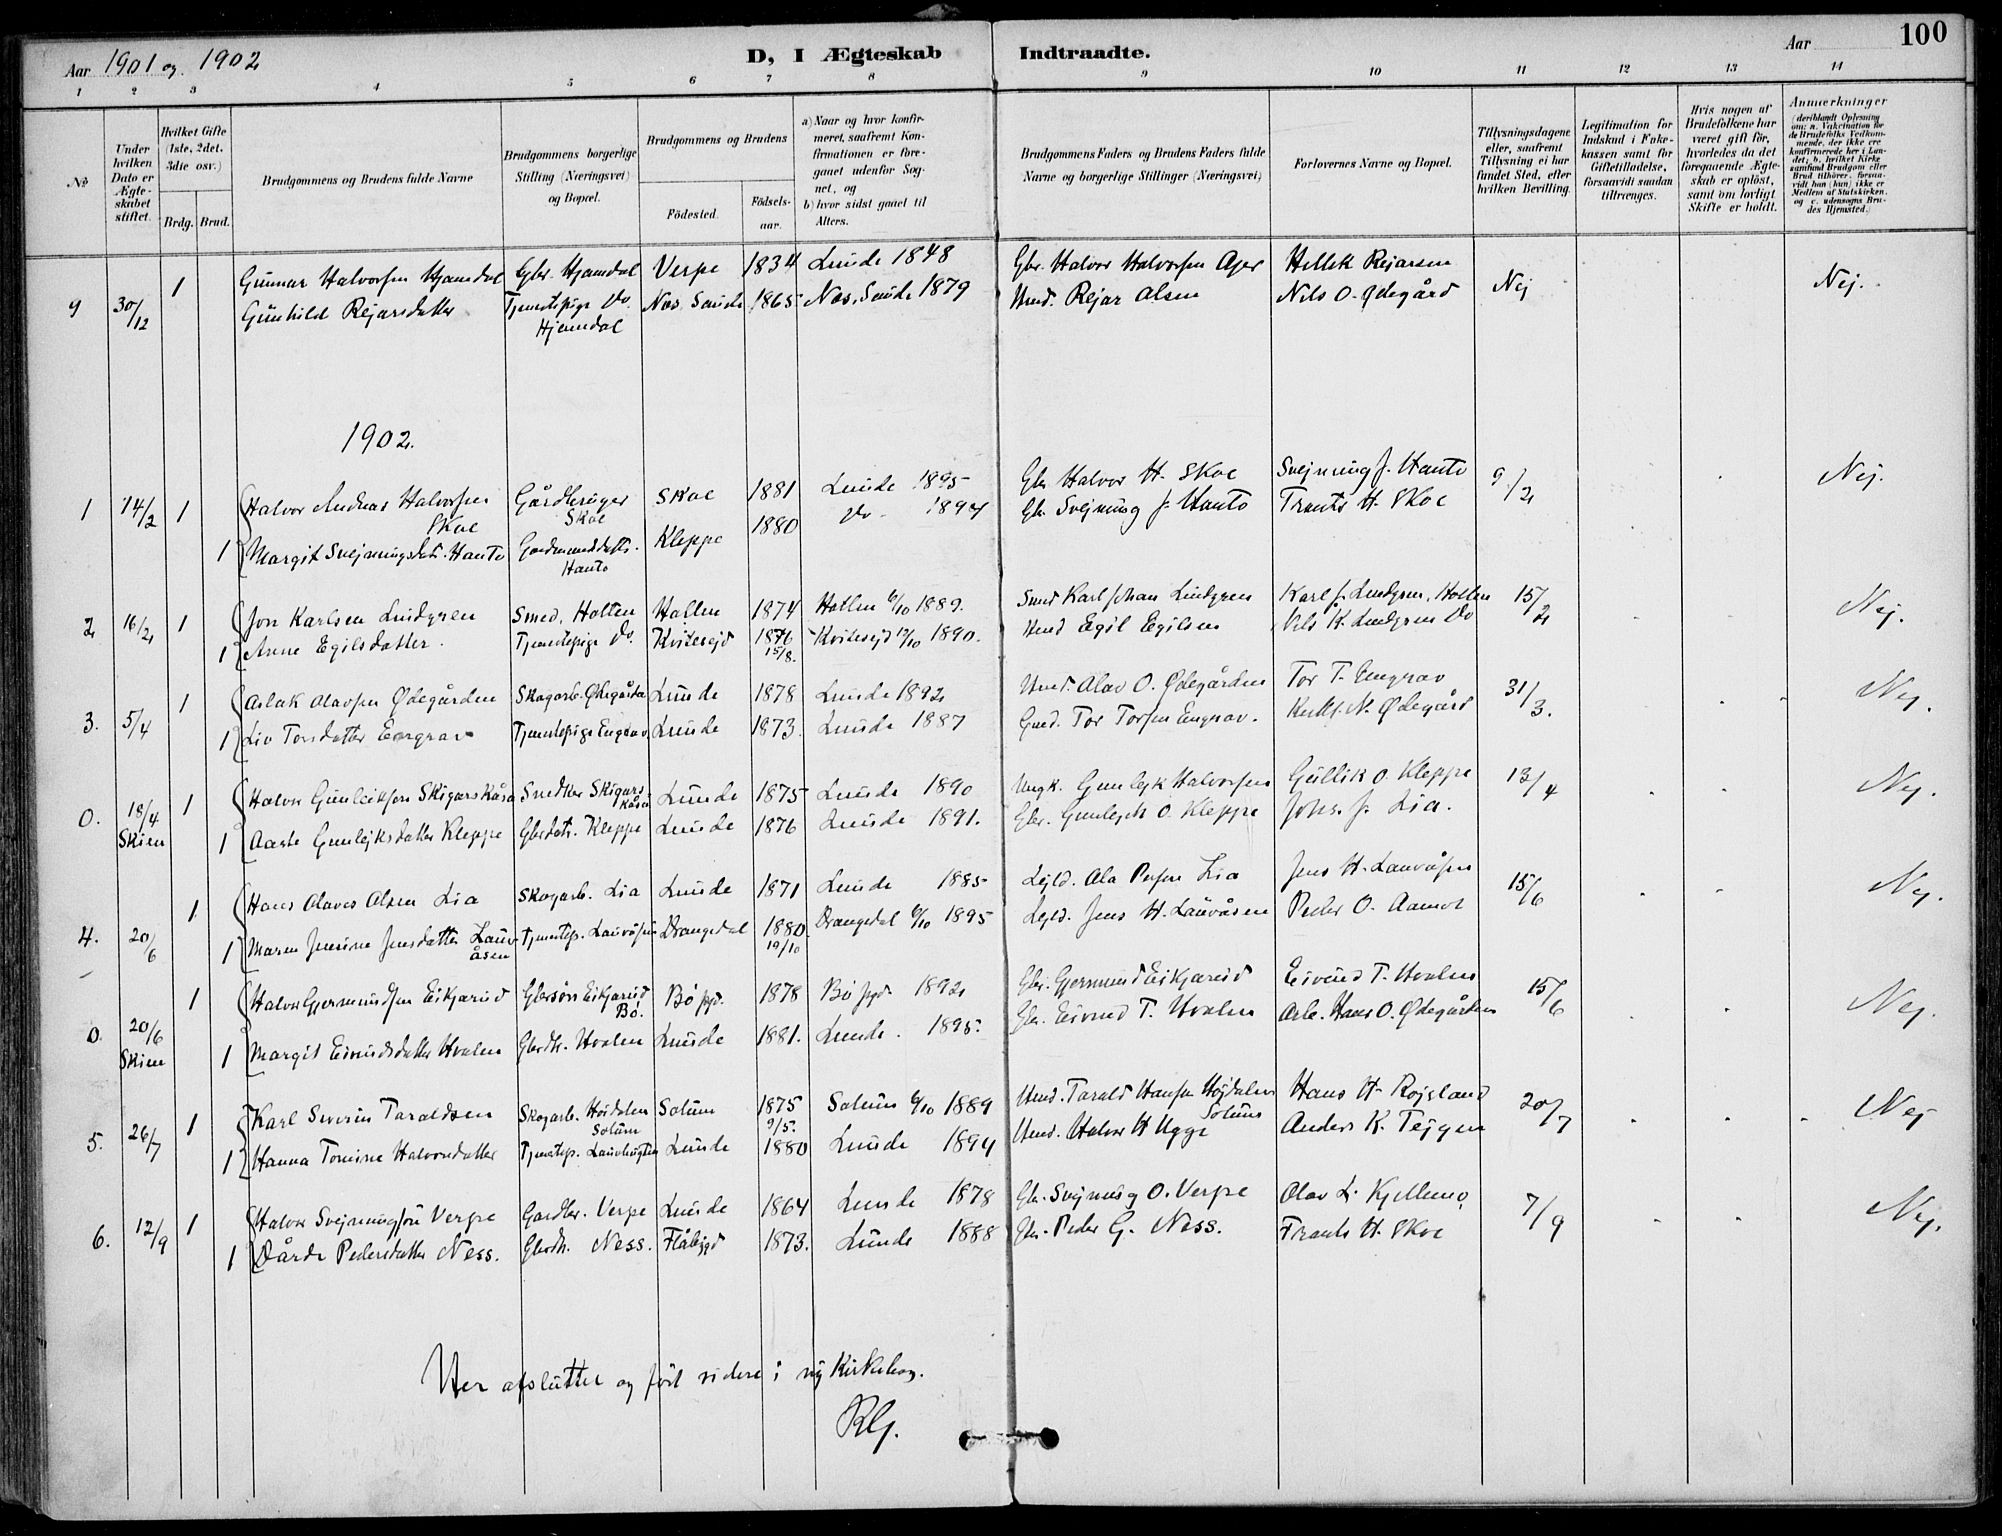 Aar 1901 og 1902
D, I Ægteskab Indtraadte.
Aar
100
1 2 3 4 5 6 7 8 9 10 11 12 13 14
No.
Under hvilken Dato er Ægteskabet stiftet.
Hvilket Gifte (1ste, 2det, 3die osv.)
Brdg. Brud.
Brudgommens og Brudens fulde Navne
Brudgommens borgerlige Stilling (Næringsvei) og Bopæl.
Brudgommens og Brudens
Fødested.
Fødselsaar.
a) Naar og hvor konfirmeret, saafremt Konfirmationen er foregaaet udenfor Sognet, og
b) hvor sidst gaaet til Alters.
Brudgommens Faders og Brudens Faders fulde Navne og borgerlige Stillinger (Næringsvei)
Forlovernes Navne og Bopæl.
Tillysningsdagene eller, saafremt Tillysning ei har fundet Sted, efter hvilken Bevilling.
Legitimation for Indskud i Enkekassen samt for Giftetilladelse, forsaavidt saadan tiltrænges.
Hvis nogen af Brudefolkene har været gift før, hvorledes da det foregaaende Ægteskab er opløst, samt om lovligt Skifte er holdt.
Anmærkninger (deriblandt Oplysning om: a. Vakcination for de Brudefolks Vedkommende, der ikke ere konfirmerede her i Landet; b. hvilket Kirkesamfund Brudgom eller Brud tilhører, forsaavidt han (hun) ikke er Medlem af Statskirken, og c. udensogns Brudes Hjemsted.)
9 30/12 1 Gunnar Halvorsen Hjamdal Gbr. Hjamdal Verpe 1834 Lunde 1848 Gbr. Halvor Halvorsen Ajer Hellek Rejarsen Nej Nej.
Gunhild Rejarsdatter Tjenestepige Do. Hjemdal Nes, Saude 1865 Nes, Saude 1879 Hmd. Rejar Olsen Nils O. Ødegård
1902.
1 14/2 1 Halvor Andreas Halvorsen Skoe Gårdbruger Skoe Skoe 1881 Lunde 1895 Gbr Halvor H. Skoe Svejnung J. Hanto 9/2 Nej.
1 Margit Svejnungsdatr. Hanto Gardmandsdattr. Hanto Kleppe 1880 Do 1894 Gbr. Svejnung J. Hanto Frants H. Skoe
2 16/2 1 Jon Karlsen Lindgren Smed, Holten Hollen 1874 Hollen 6/10 1889. Smed Karl Johan Lindgren Karl J. Lindgren, Hollen 15/2 Nej.
1 Anne Egilsdatter. Tjenestepige Do. Kvitesejd 1876 15/8. Kvitesejd 12/10 1890. Hmd Egil Egilsen Nils K. Lindgren Do
3. 5/4 1 Aslak Olavsen Ødegården Skogarb. Ødegården Lunde 1878 Lunde 1892 Hmd. Olav O. Ødegården Tor T. Engrav 31/3. Nej.
1 Liv Torsdatter Engrav Tjenestepige Engrav. Lunde 1873. Lunde 1887 Gmd. Tor Torsen Engrav. N. Ødegård
0. 18/4 Skien 1 Halvor Gunleiksen Skigarskåsa Snedker Skigarskåsa Lunde 1875 Lunde 1890 Ungk. Gunlejk Halvorsen Gullik O. Kleppe 13/4 Nej.
1 Aaste Gunlejksdatter Kleppe Gbrdatr. Kleppe Lunde 1876 Lunde 1891. Gbr. Gunlejk O. Kleppe Johs. J. Lia.
4. 20/6 1 Hans Olaves Olsen Lia Skogarb. Lia Lunde 1871 Lunde 1885 Lejld. Ola Persen Lia Jens H. Lauvåsen 15/6 Nej.
1 Maren Jensine Jensdatter Lauvåsen Tjenestep. Lauvåsen Drangedal 1880. 19/10 Drangedal 6/10 1895 Lejld. Jens H. Lauvåsen Peder O. Aamot
0. 20/6 Skien 1 Halvor Gjermundsen Eikjarud Gbrsøn Eikjarud Bø. Bø pgd. 1878 Bø pgd. 1892 Gbr. Gjermund Eikjarud Eivind T. Hvalen 15/6 Nej.
1 Margit Eivindsdatter Hvalen Gbrdtr. Hvalen Lunde 1881. Lunde. 1895. Gbr. Eivind T. Hvalen Arb. Hans O. Ødegården
5. 26/7 1 Karl Severin Taraldsen Skogarb. Høidalen Solum Solum 1875 9/5. Solum 6/10 1889 Hmd. Tarald Hansen Høidalen Solum Hans H. Røjsland 20/7 Nej
1 Hanna Tomine Halvorsdatter Tjenstep. Lunde 1880 Lunde 1894 Hmd. Halvor H Ugge Anders K. Tejgen
6. 12/9 1 Halvor Svejnungsen Verpe Gardbr. Verpe Lunde 1864 Lunde 1878 Gbr. Svejnung O. Verpe Olav L. Kjellemo 7/9 Nej.
1 Dårde Pedersdatter Ness. Gbrdtr. Ness. Flåbygd 1873. Lunde 1888 Gbr. Peder G. Ness. Frants H. Skoe
Her afsluttet og ført videre i ny Kirkebog.